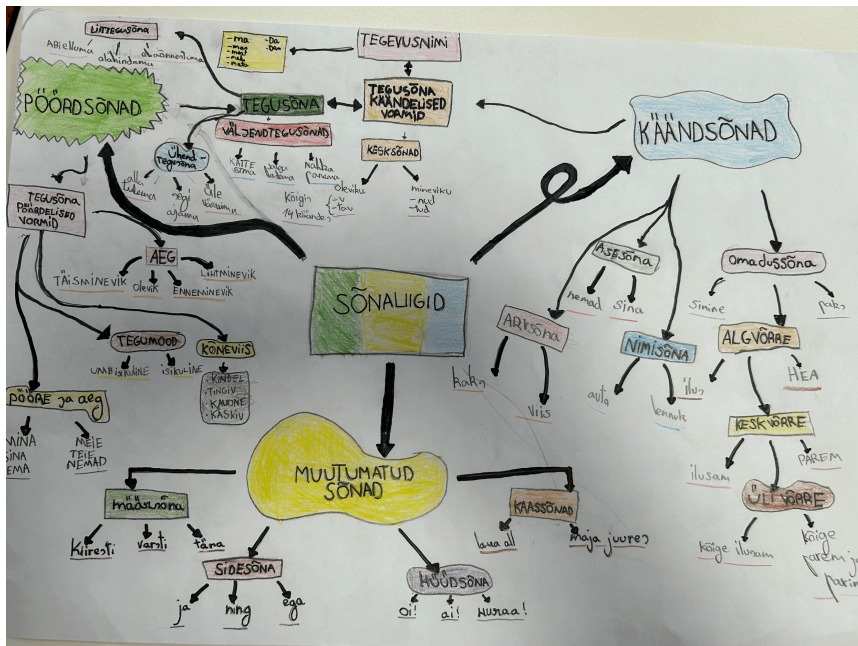 LIITTEGUSÕNA
ABIELLUMA
alahindama
PÖÖRDSÕNAD
-ma
-mas
-mast
-maks
-mata
-Da
-Des
TEGEVUSNIMI
TEGUSÕNA
KÄÄNDELISED
VORMID
TEGUSÕNA
VÄLJENDTEGUSÕNAD
Ühend-
tegusõna
alla
tulema
segi
ajama
üle
KÄTTE
nahka
panema
KESKSÕNAD
Kõigis
14 käändes
oleviku
-v
-tav
mineviku
-nud
-tud
KÄÄNDSÕNAD
TEGUSÕNA
PÖÖRDELISED
VORMID
AEG
TÄISMINEVIK
Olevik
ENNEMINEVIK
LIHTMINEVIK
TEGUMOOD
UMBISIKULINE
ISIKULINE
KÕNEVIIS
KINDEL
TINGIV
KAUDNE
KÄSKIV
PÖÖRE ja aeg
MINA
SINA
TEMA
MEIE
TEIE
NEMAD
SÕNALIIGID
ASESÕNA
nemad
sina
ARVSÕNA
kaks
viis
NIMISÕNA
auto
lennuk
Omadussõna
Sinine
paks
ALGVÕRRE
ilus
HEA
KESKVÕRRE
ilusam
PAREM
ÜLIVÕRRE
kõige ilusam
kõige
parem ja
parim
MUUTUMATUD
SÕNAD
määrsõna
Kiiresti
varsti
täna
SIDESÕNA
ja
ning
ega
HÜÜDSÕNA
oi!
ai!
Hurraa!
KAASSÕNAD
laua all
maja juures